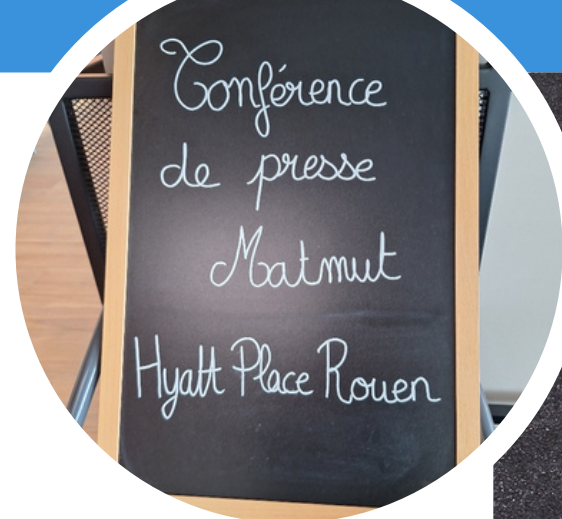 Conférence
de presse
Matmut
Hyatt Place Rouen